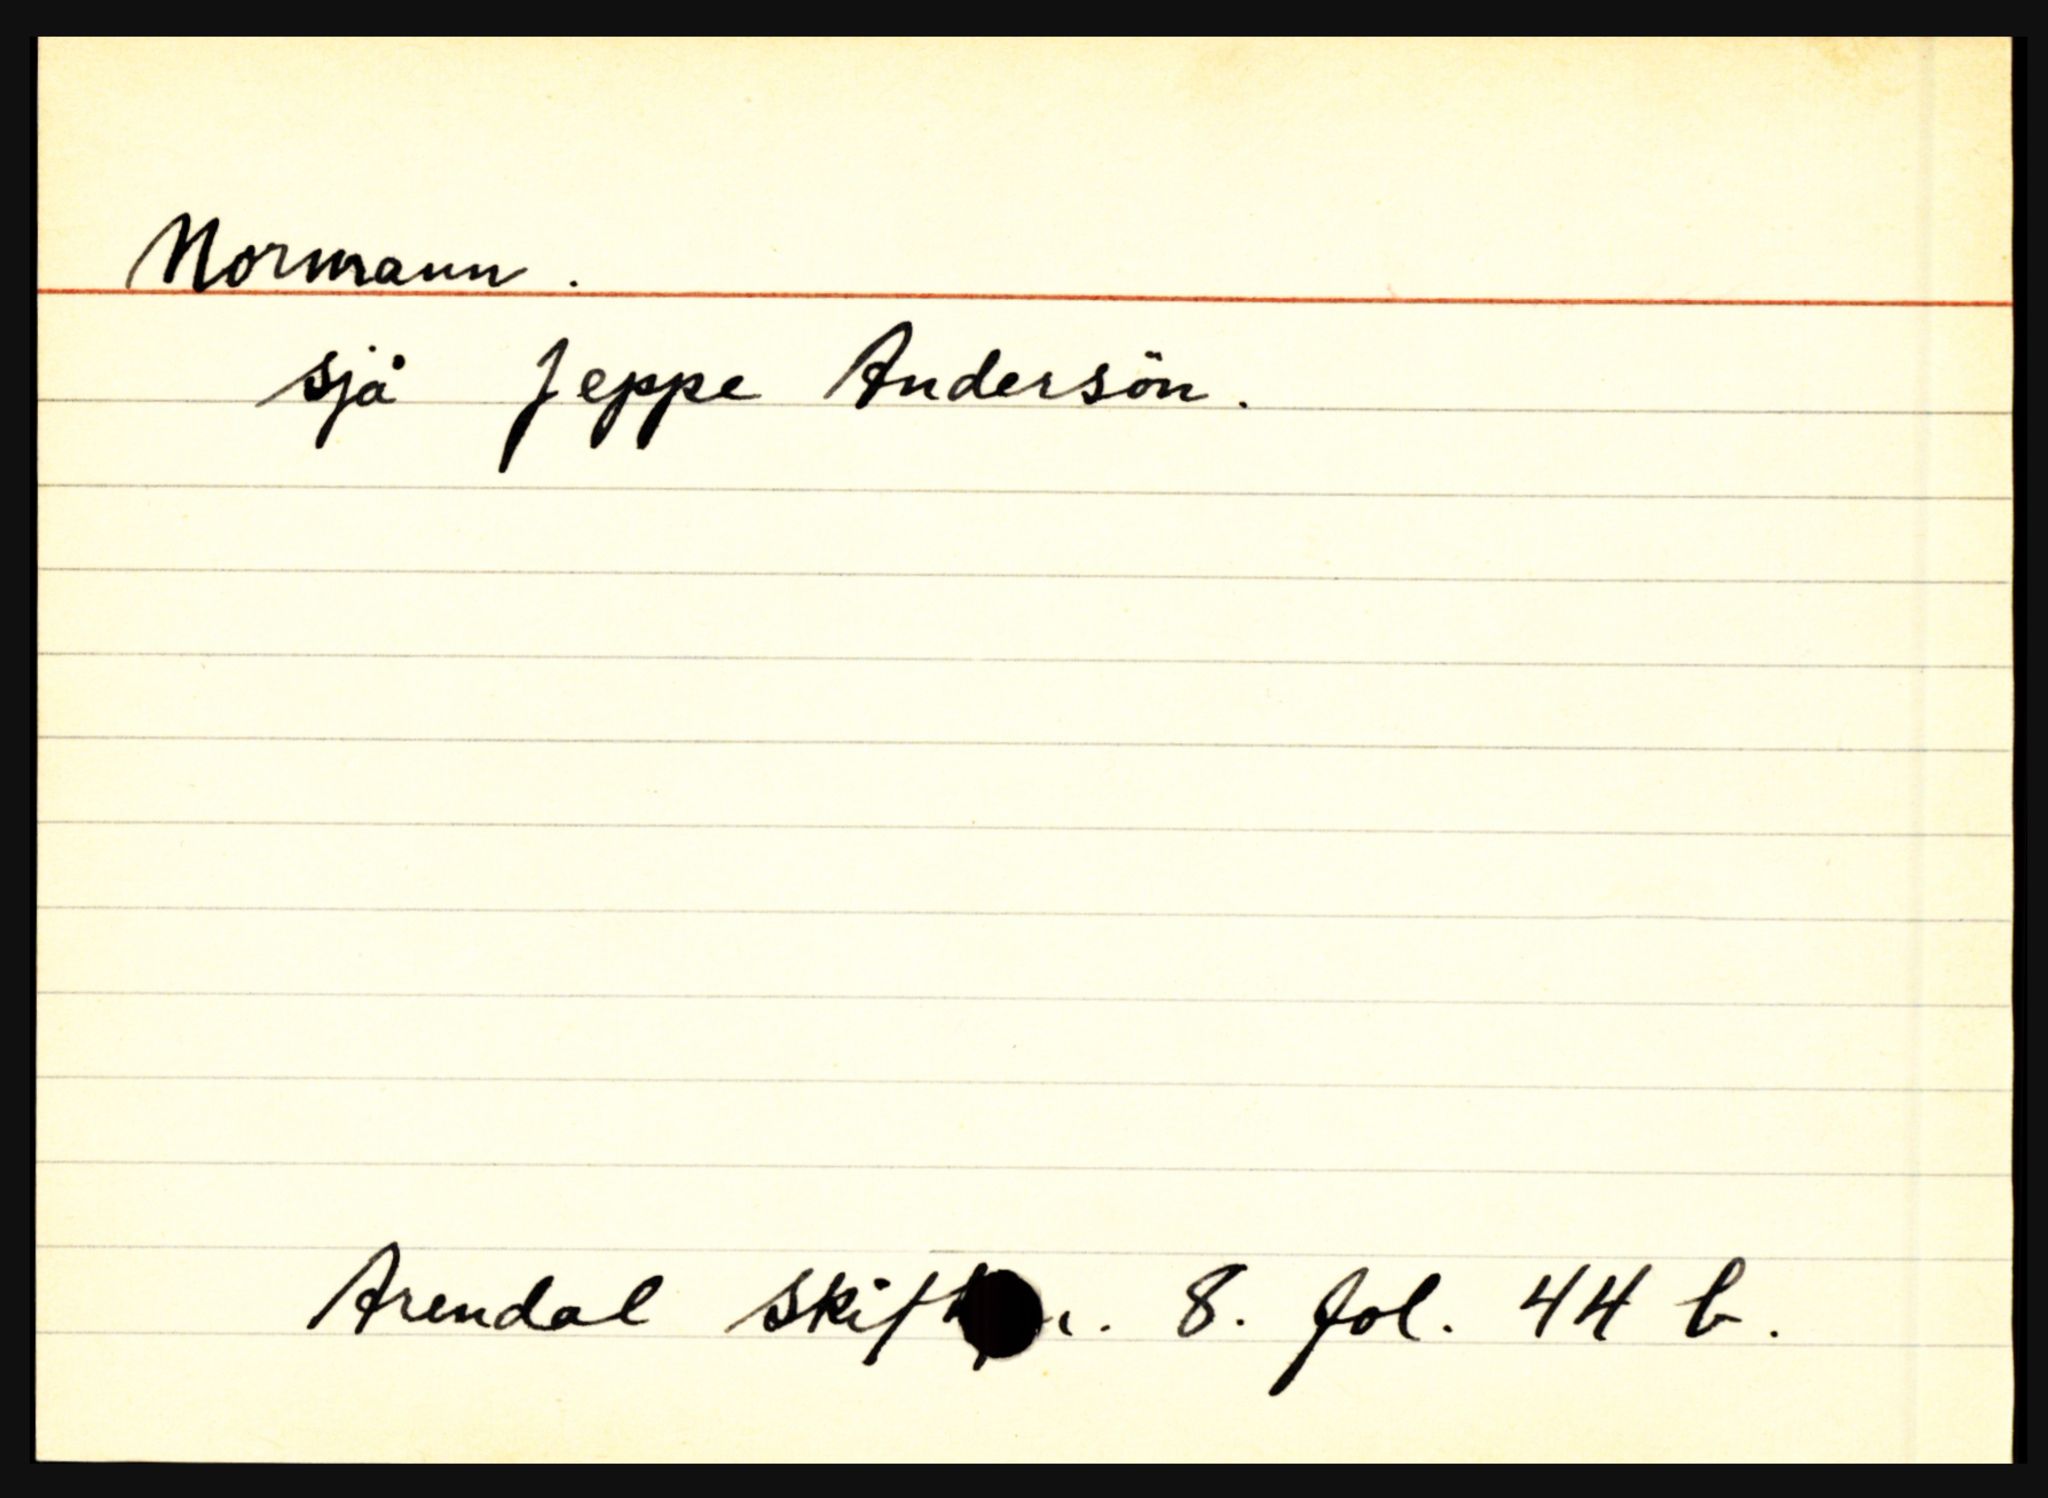 Normann.
sjå Jeppe Andersön.
Arendal 8. fol. 44 b.